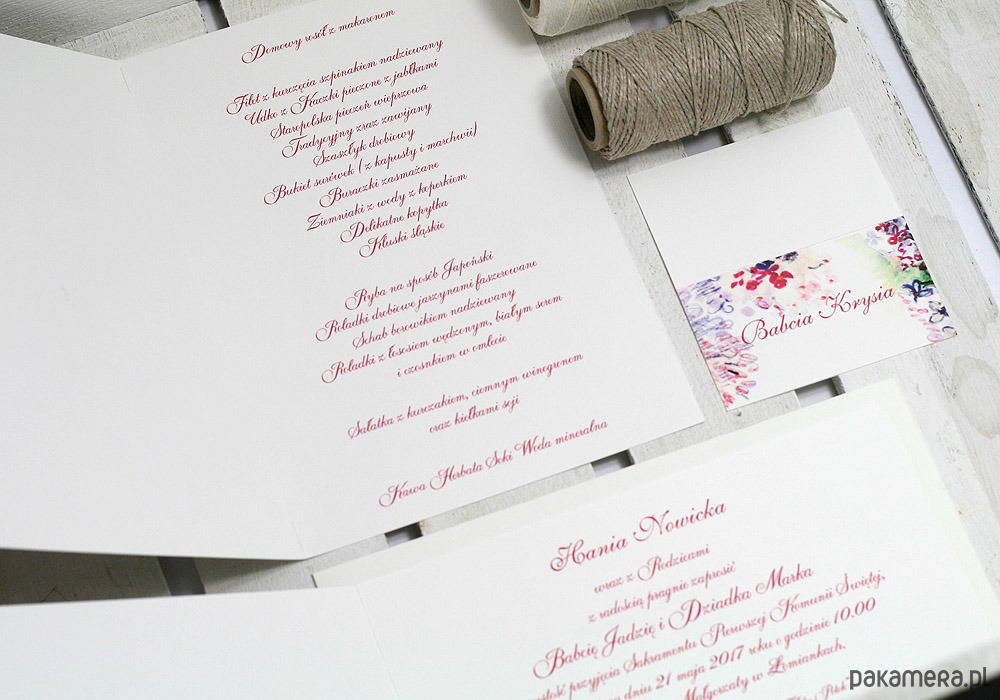 Domowy rosół z makaronem
Filet z kurczęcia szpinakiem nadziewany
Udko z Kaczki pieczone z jabłkami
Staropolska pieczeń wieprzowa
Tradycyjny zraz zawijany
Szaszłyk drobiowy
Bukiet surówek ( z kapusty i marchwii)
Buraczki zasmażane
Ziemniaki z wody z koperkiem
Delikatne kopytka
Kluski śląskie
Ryba na sposób Japoński
Roladki drobiowe jarzynami faszerowane
Schab borowikiem nadziewany
Roladki z łososiem wędzonym, białym serem
i czosnkiem w omlecie
Sałatka z kurczakiem, ciemnym winogronem
oraz kiełkami soji
Kawa Herbata Soki Woda mineralna
Babcia Krysia
Hania Nowicka
wraz z Rodzicami
z radością pragnie zaprosić
Babcię Jadzię i Dziadka Marka
przyjęcia Sakramentu Pierwszej Komunii Świętej,
dniu 21 maja 2017 roku o godzinie 10.00
Małgorzaty w Łomiankach.
pakamera.pl